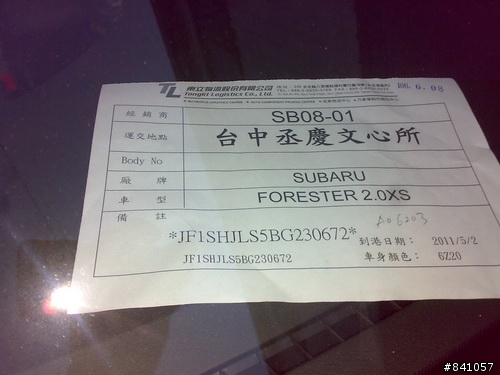 TL 東立物流股份有限公司
Tongli Logistics Co., Ltd.
100. 6. 08
經銷商 SB08-01
運交地點 台中丞慶文心所
Body No
廠牌 SUBARU
車型 FORESTER 2.0XS
備註
A06203
*JF1SHJLS5BG230672* 到港日期： 2011/5/2
JF1SHJLS5BG230672 車身顏色： 6Z20
#841057